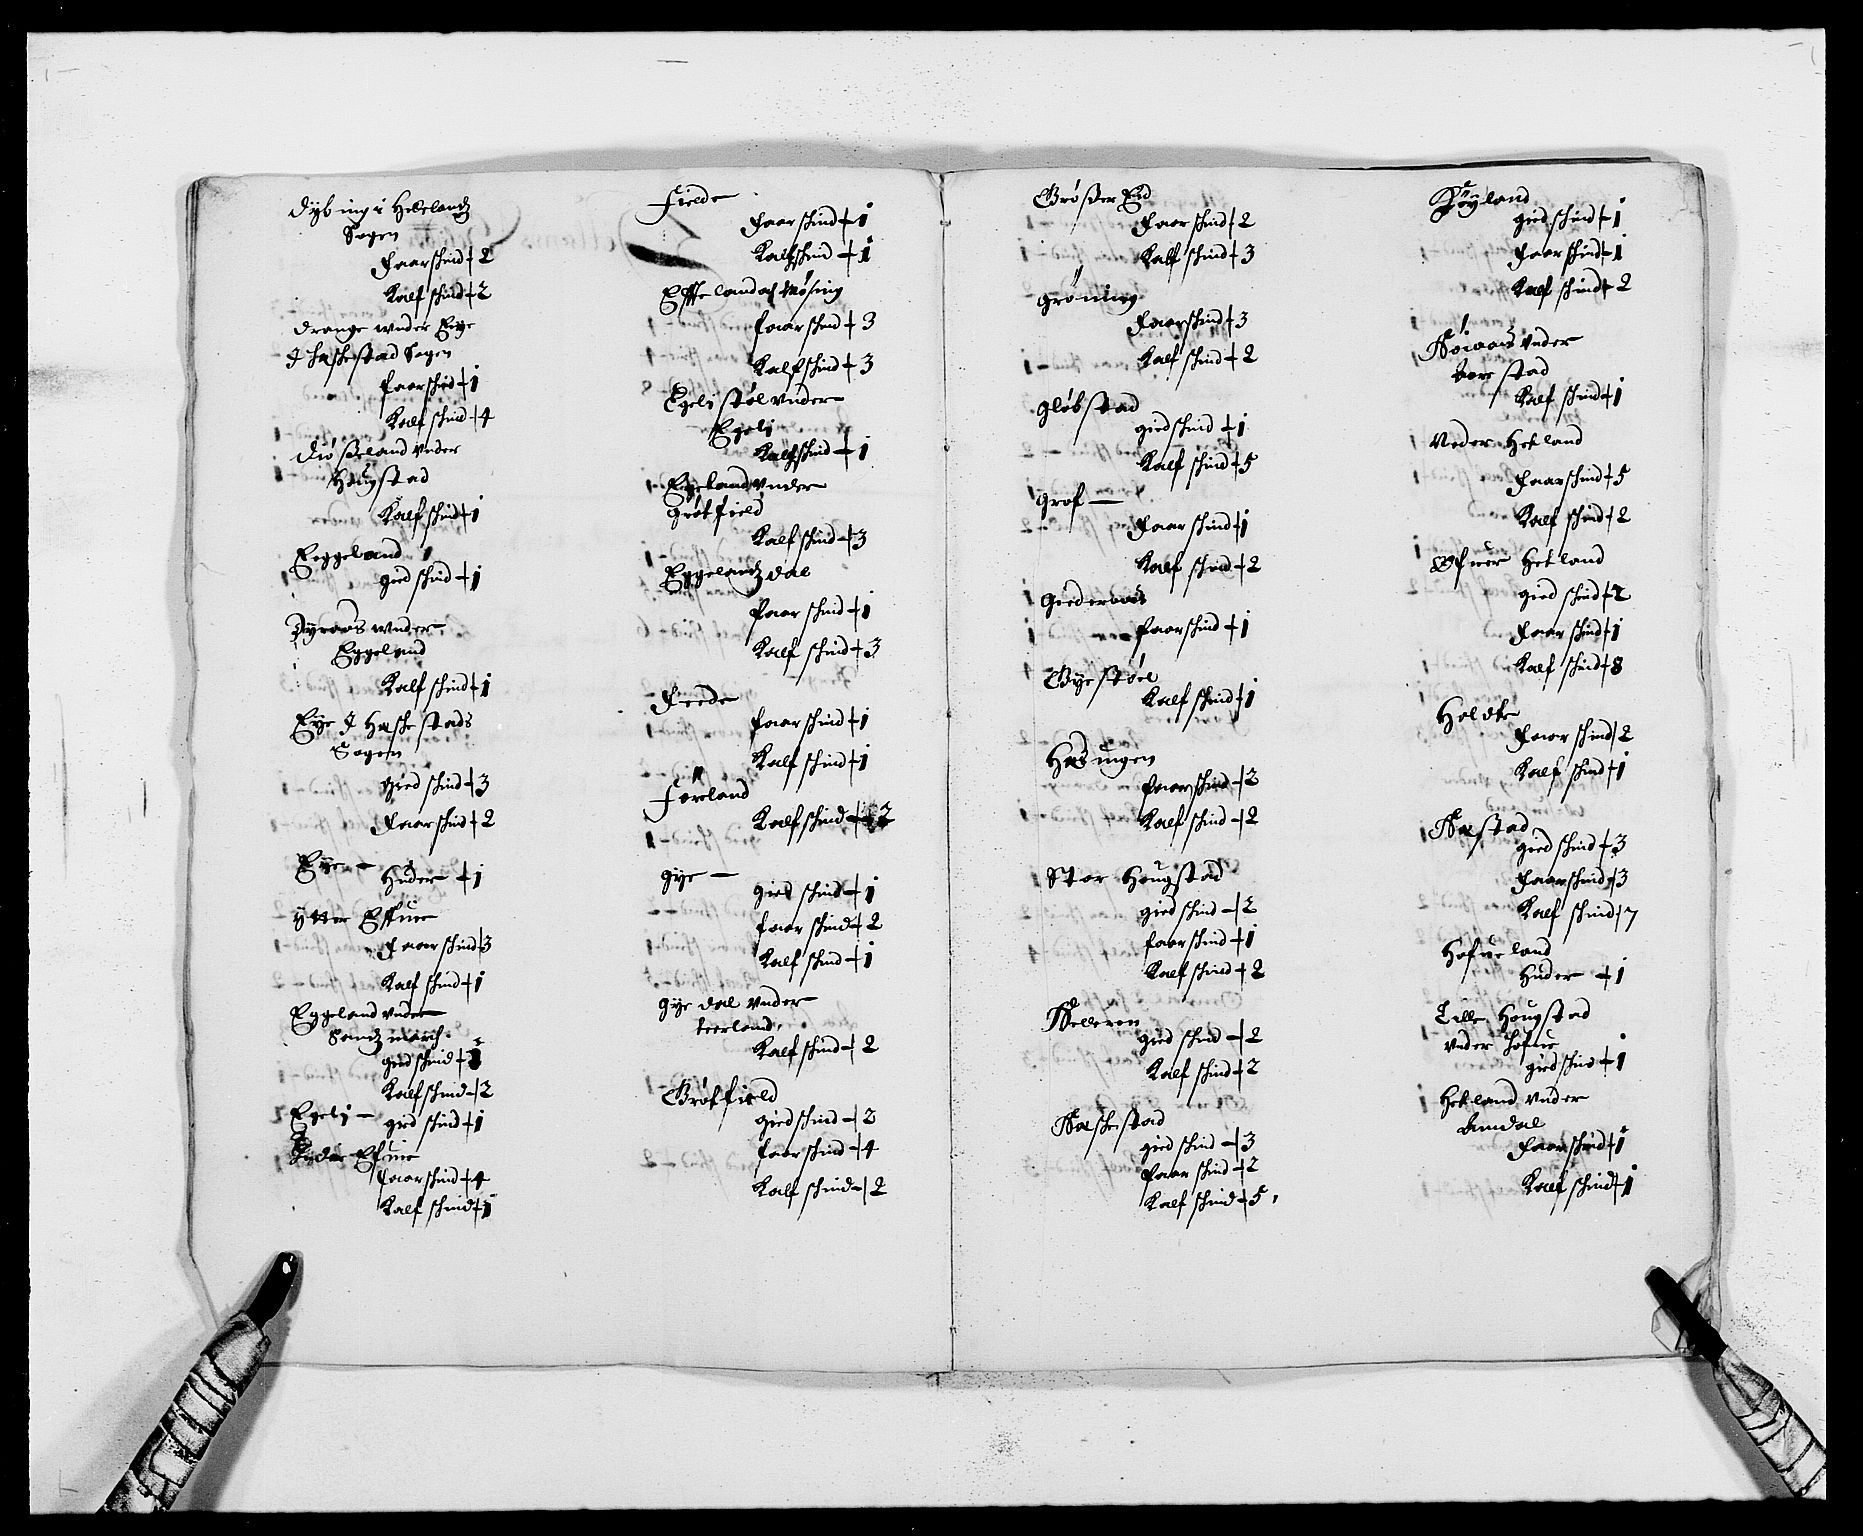 Dybing i Helelandz
Sogen
Faarschind 2
Kalfschind 2
Drange wnder Eye
I Haskestad Sogen
faarschind 1
Kalfschind 4
Diøsseland vnder
Hougstad
Kalfschind 1
Eeggeland
gied schind 1
Dyraas wnder
Eggeland
Kalf schind 1
Eye I Haskestads
Sogen
gied schind 3
Faarschind 2
Eye
Huder 1
ytter Effue
Faarschind 3
Kalf schind 1
Eggeland vnder
Sandz march
giedschind
Kalfschind 2
Egeli
gied schind 1
Efuue
faarschind 4
Kalf schind 1
Fielde
Faarschind 1
Kalfschind 1
Effteland
faarschind 3
Kalfschind 3
Egeli støl vnder
Egeli
Kalfschind 1
Eggeland vnder
Grøtfield
Kalf schind 3
Eggelandz dal
Faar schind 1
Kalf schind 3
Feede
faar schind 1
Kalf schind 1
Føreland
Kalf schind 2
gye
gied schind 1
faar schind 2
Kalf schind 1
gye dal vnder
Kalf schind 2
Grøtfield
gied schind 2
faar schind 4
Kalf schind 2
Grøsser Eid
Faar schind 2
Kalf schind 3
Grøning
Faarschind 3
Kalf schind 2
gløbstad
gied schind 1
Kalf schind 5
Grof
Faar schind 1
Kalf schind 2
Giederaas
faarschind 1
Gyestøel
Kalf schind 1
Hasingen
faarschind 2
Kalf schind 2
Stor Hougstad
gied schind 2
faar schind 1
Kalf schind 2
Helleren
gied schind 2
Kalf schind 2
Haskestad
gied schind 3
faar schind 2
Kalf schind 5
Høyland
gied schind 1
Faar schind 1
Kalf schind 2
vnder
Aarestad
Kalf schind 1
Neder Hetland
Faarschind 5
Kalf schind 2
Øfuer Hetland
gied schind 2
Faar schind 1
Kalf schind 8
Faar schind 2
Kalf schind 1
Haastad
gied schind 3
Faarschind 3
Kalf schind 7
Hofueland
Huder 1
Lille Hougstad
vnder Hofue
gied schind 1
Hetland vnder
Amdal
Faar schind 1
Kalf schind 1